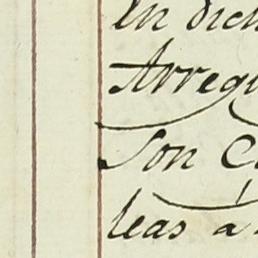 En dich
Arregl
son C
leas a